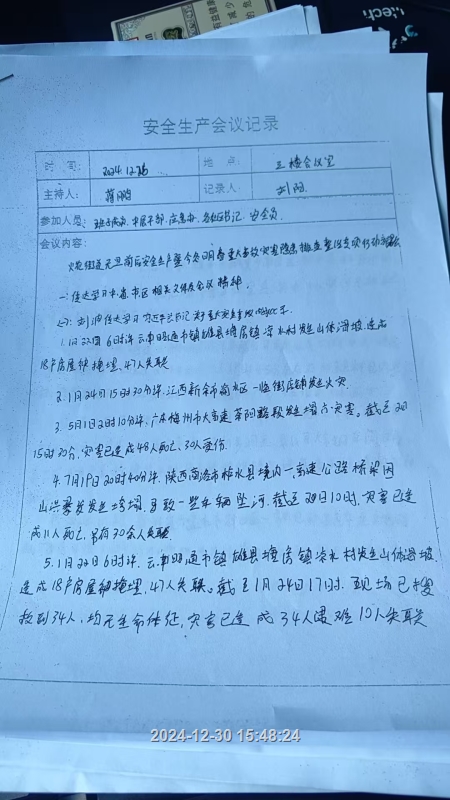 安全生产会议记录
时 间： 2024.12.26 地 点： 三楼会议室
主持人： 蒋鹏 记录人： 刘
参加人员： 班子成员、中层干部、应急办、各社区书记、安全员
会议内容：
街道元旦前后安全生产暨今冬明春重大事故灾害隐患排查整治专项行动
一、传达学习中省市区相关文件及会议精神
传达学习
1. 1月22日6时许，云南昭通市镇雄县塘房镇凉水村发生山体滑坡，造成
18户房屋被掩埋，47人失联
2. 1月24日15时30分许，江西新余市渝水区一临街店铺发生火灾
3. 5月1日2时10分许，广东梅州市大高速茶阳路段发生塌方灾害。截至2日
15时30分，灾害已造成48人死亡、30人受伤
4. 7月19日20时40分许，陕西商洛市柞水县境内一高速公路桥梁因
山洪暴发发生垮塌，导致一些车辆坠河，截至20日10时，灾害已造
成11人死亡，另有30余人失联
5. 1月22日6时许，云南昭通市镇雄县塘房镇凉水村发生山体滑坡，
造成18户房屋被掩埋，47人失联。截至1月24日17时，现场已搜
救到34人，均无生命体征，灾害已造成34人遇难10人失联
2024-12-30 15:48:24